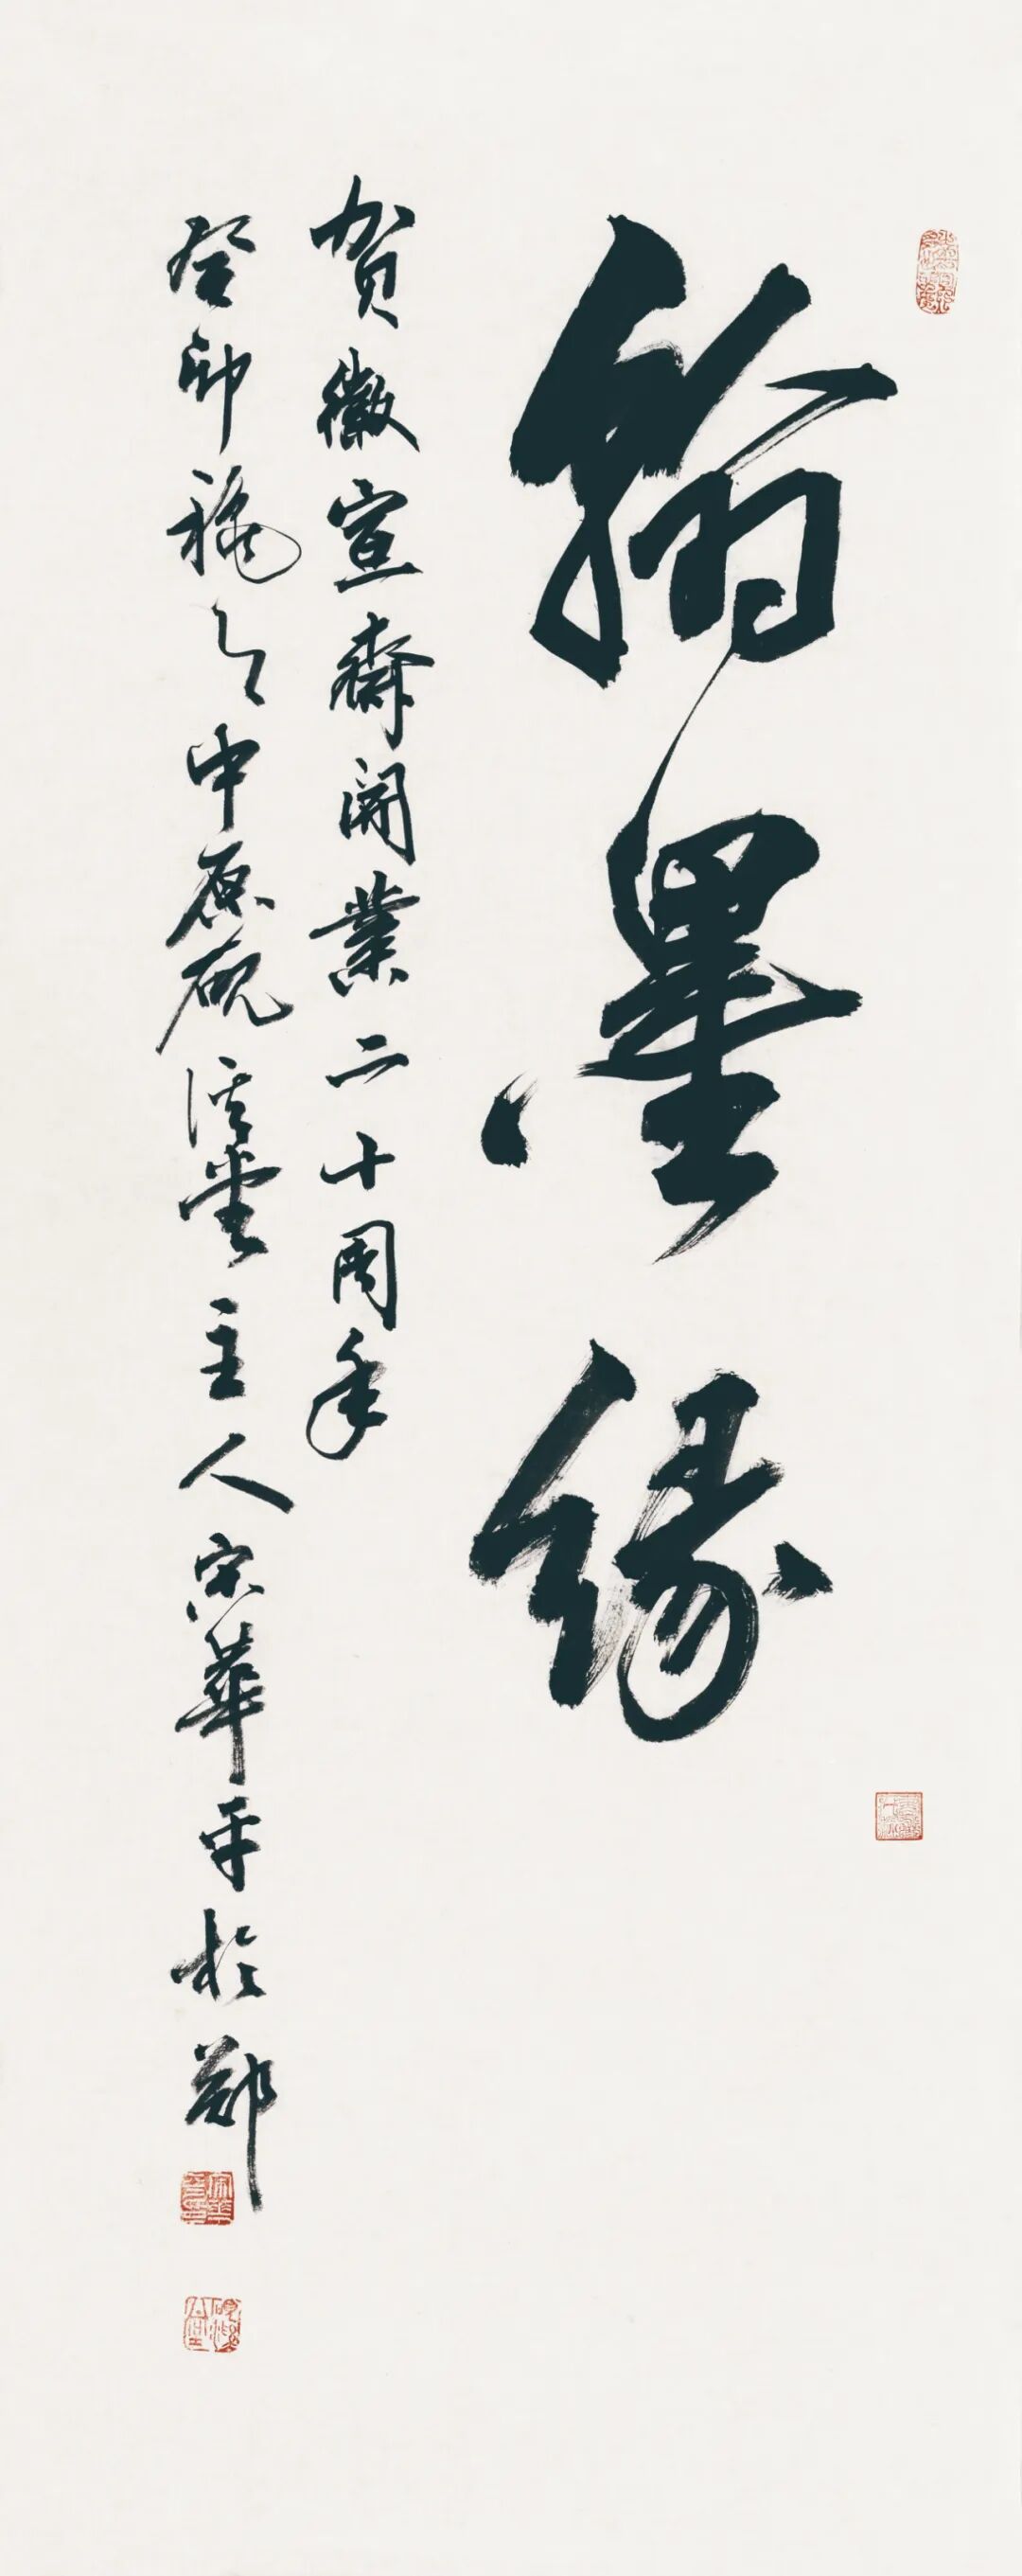 翰墨缘
贺徽宣斋开业二十周年
癸卯秋之中原砚溪堂主人宋华平于郑